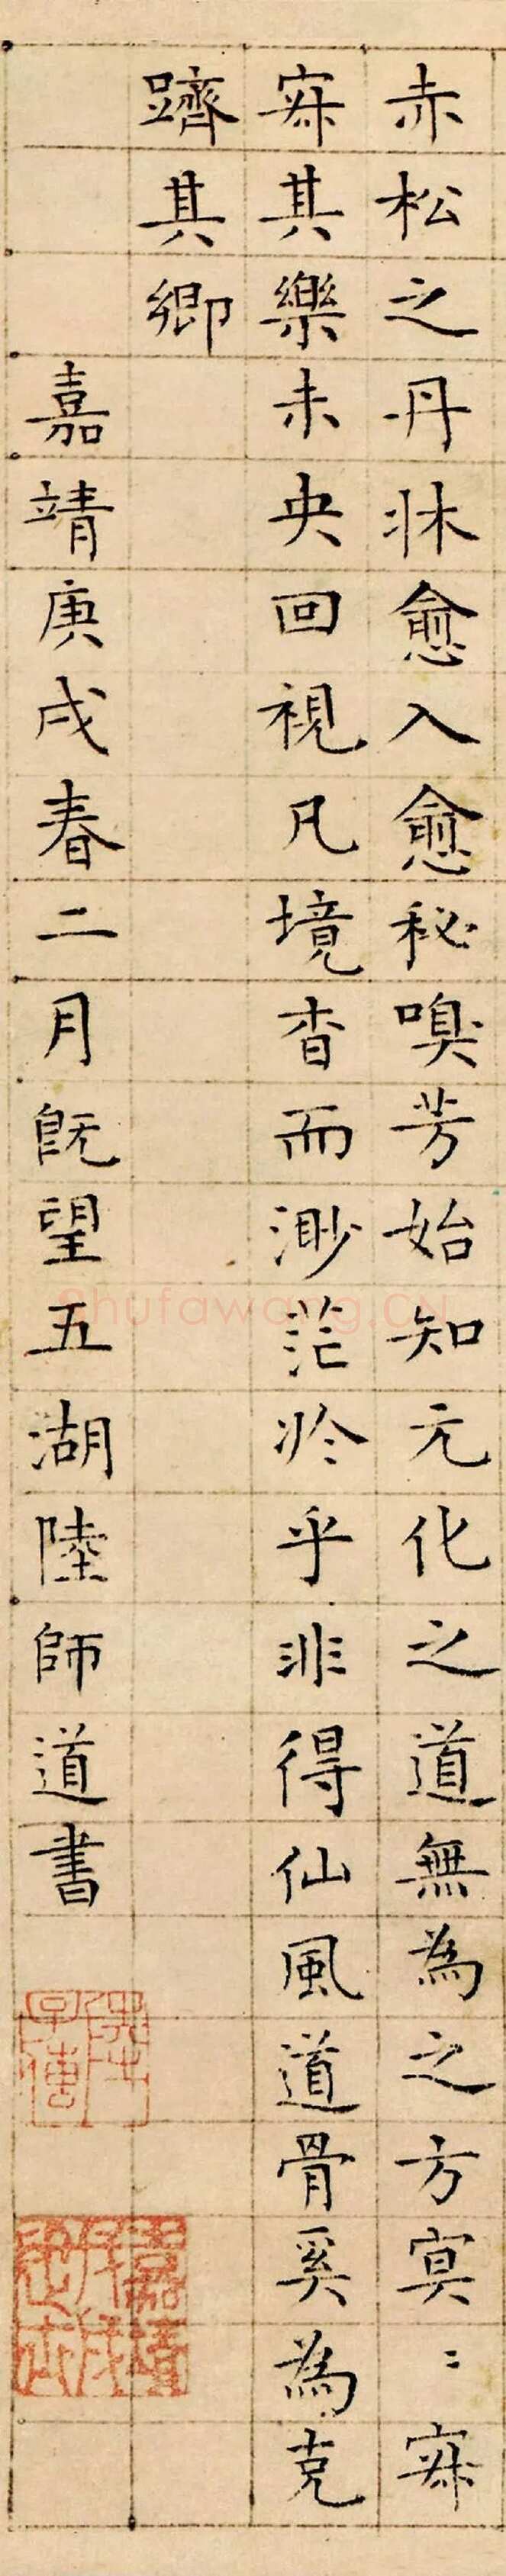 赤松之丹牀愈入愈秘嗅芳始知元化之道無為之方冥〻寂
寂其樂未央回視凡境杳而渺茫於乎非得仙風道骨奚為克
躋其鄉
嘉靖庚戌春二月既望五湖陸師道書
陸氏子傳
Shufawang.CN